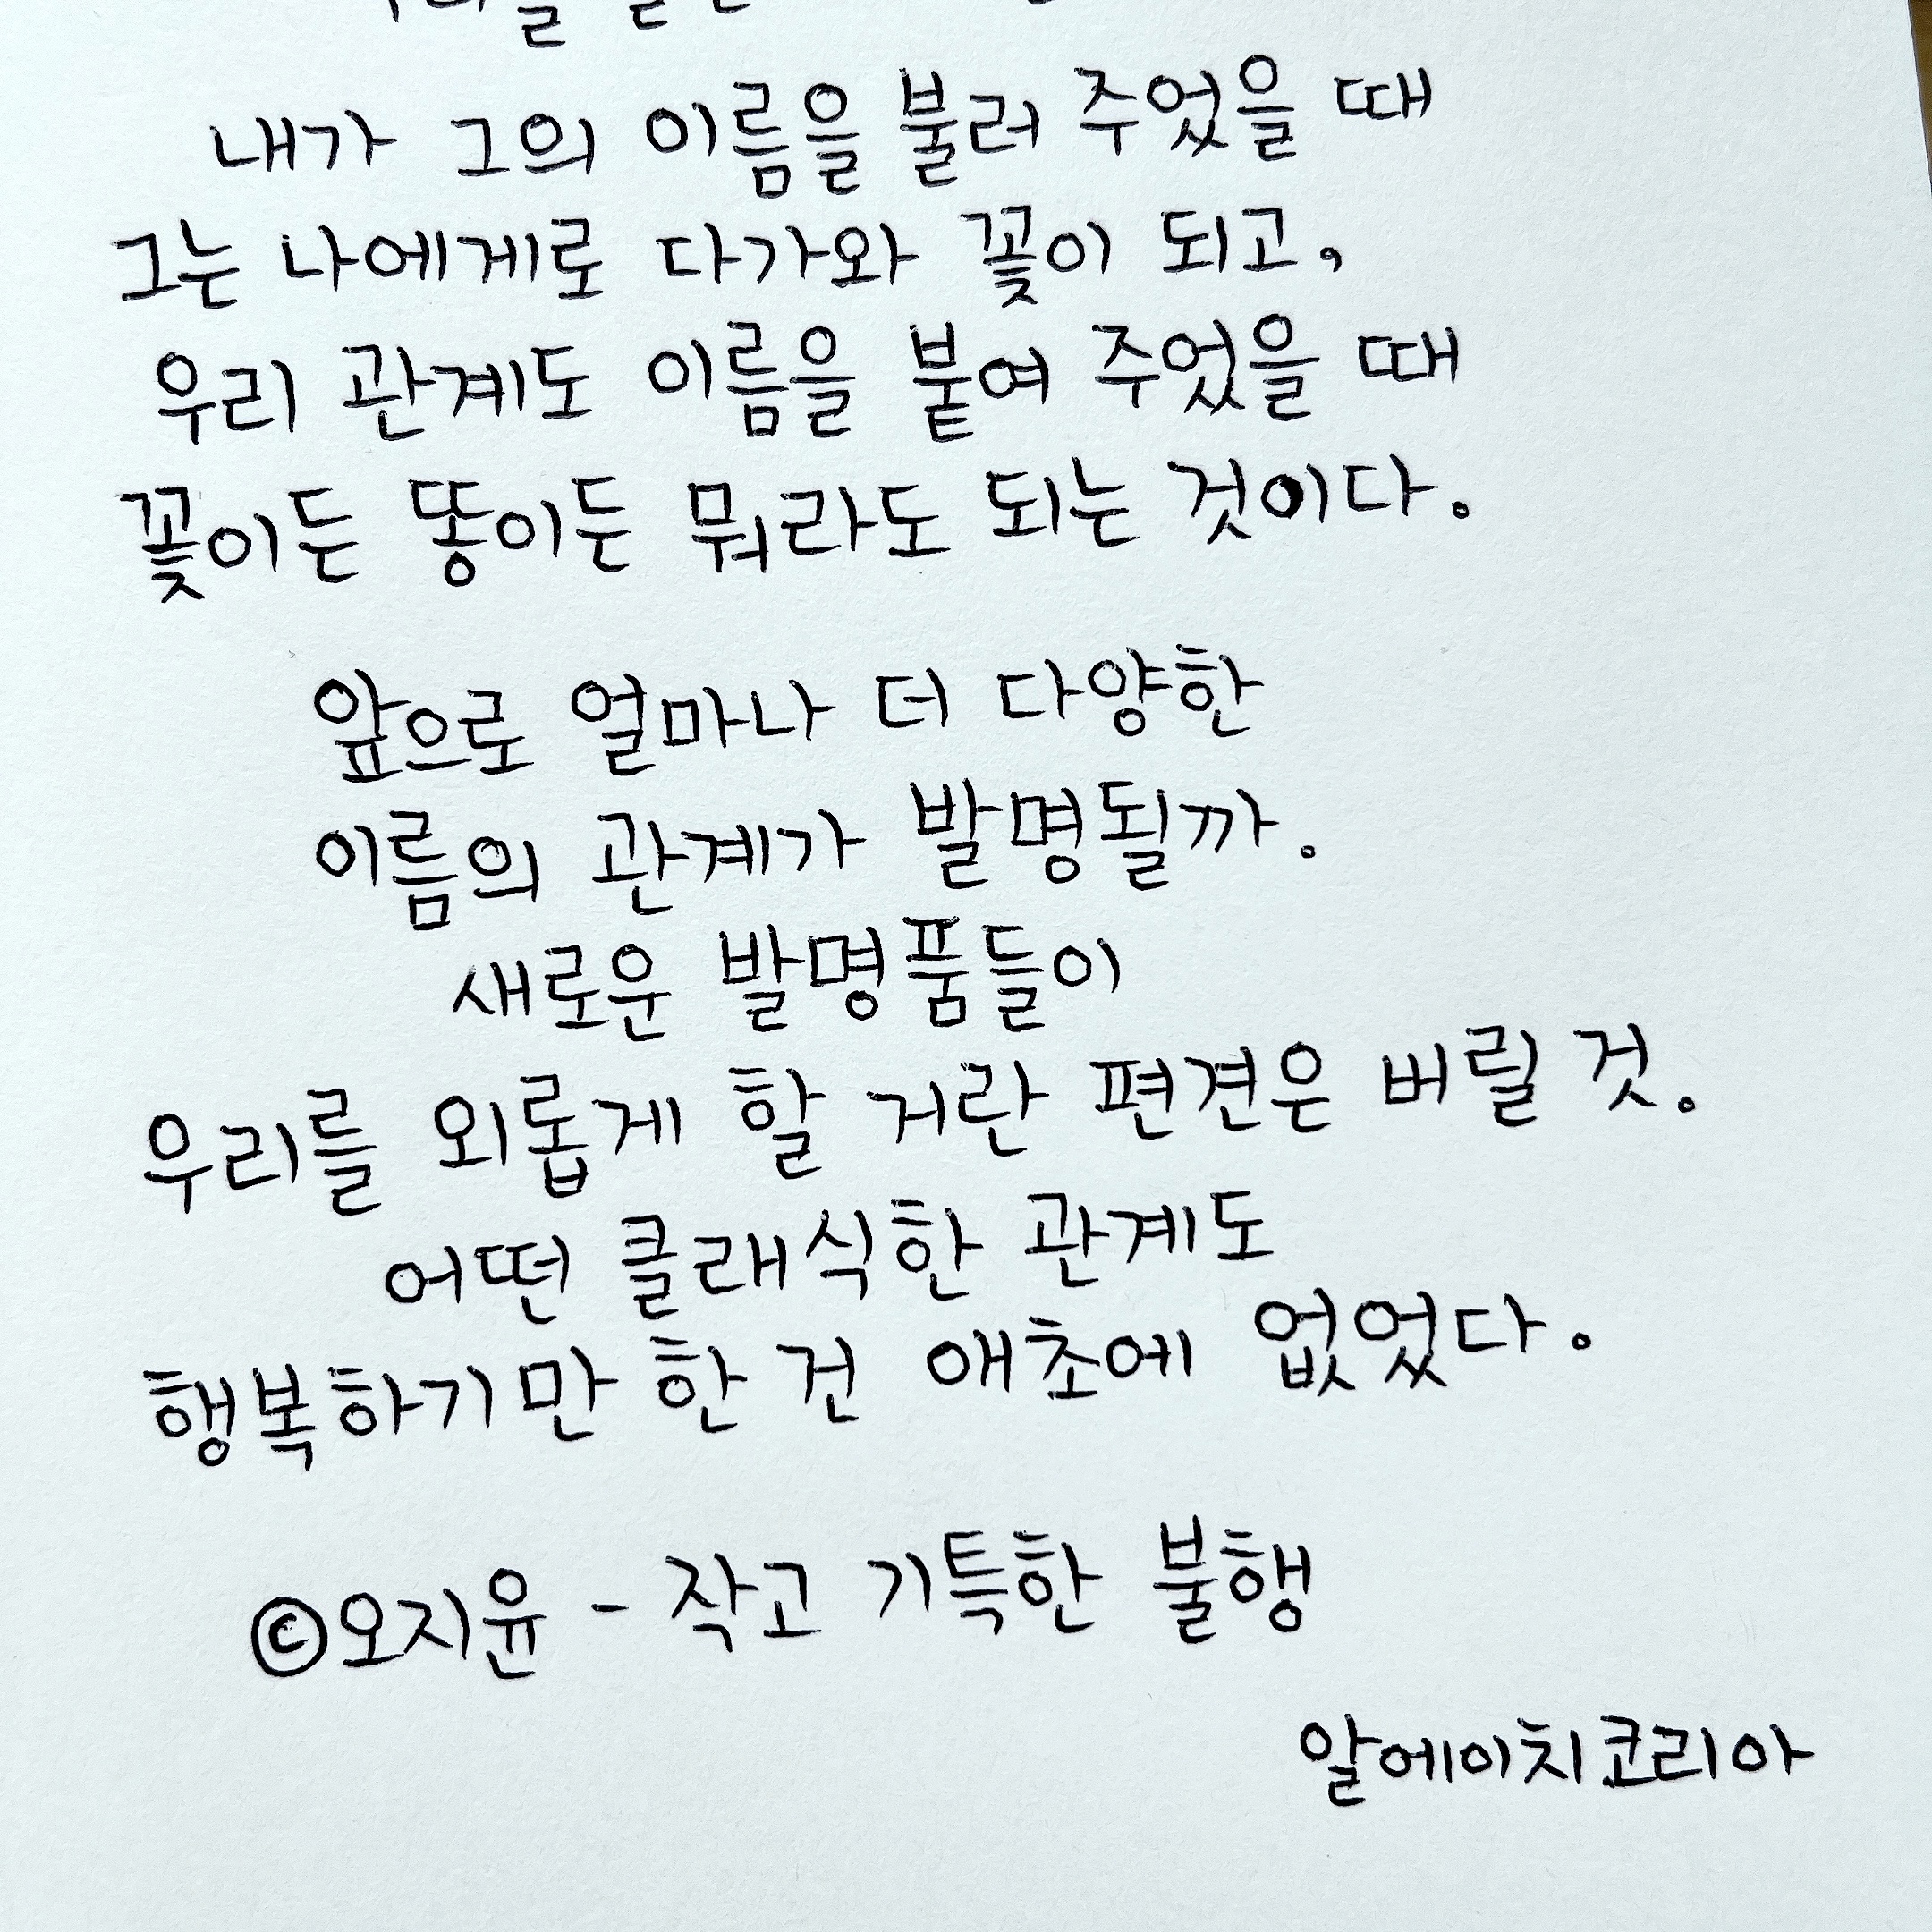 내가 그의 이름을 불러 주었을 때
그는 나에게로 다가와 꽃이 되고,
우리 관계도 이름을 붙여 주었을 때
꽃이든 똥이든 뭐라도 되는 것이다.
앞으로 얼마나 더 다양한
이름의 관계가 발명될까.
새로운 발명품들이
우리를 외롭게 할 거란 편견은 버릴 것.
어떤 클래식한 관계도
행복하기만 한 건 애초에 없었다.
©오지윤 - 작고 기특한 불행
알에이치코리아